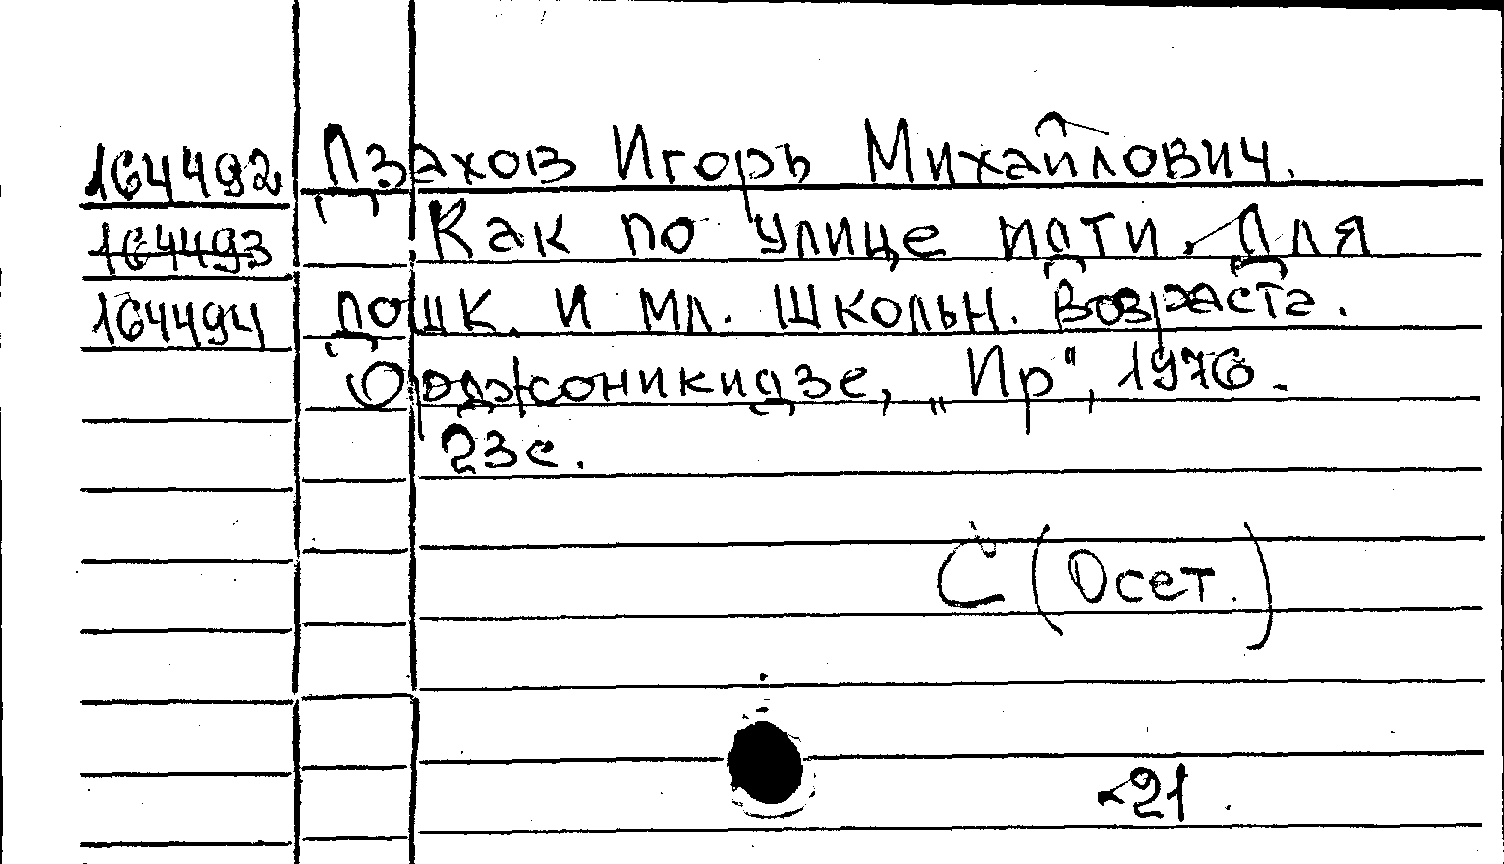 164492 Дзахов Игорь Михайлович.
164493 Как по улице идти. Для
164494 дошк. и мл. школьн. возраста.
Орджоникидзе, „Ир", 1976.
23с.
С (Осет.)
21